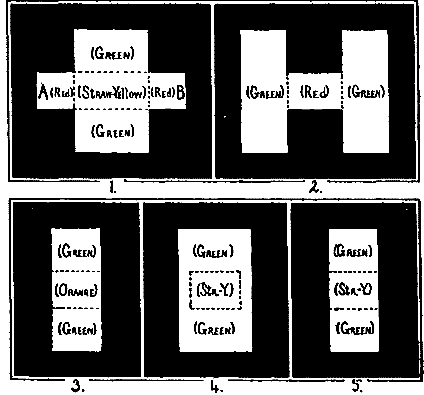 (GREEN)
A (RED) (STRAW-YELLOW) (RED) B
(GREEN)
1.
(GREEN) (RED) (GREEN)
2.
(GREEN)
(ORANGE)
(GREEN)
3.
(GREEN)
(STR.-Y)
(GREEN)
4.
(GREEN)
(STR.-Y)
(GREEN)
5.